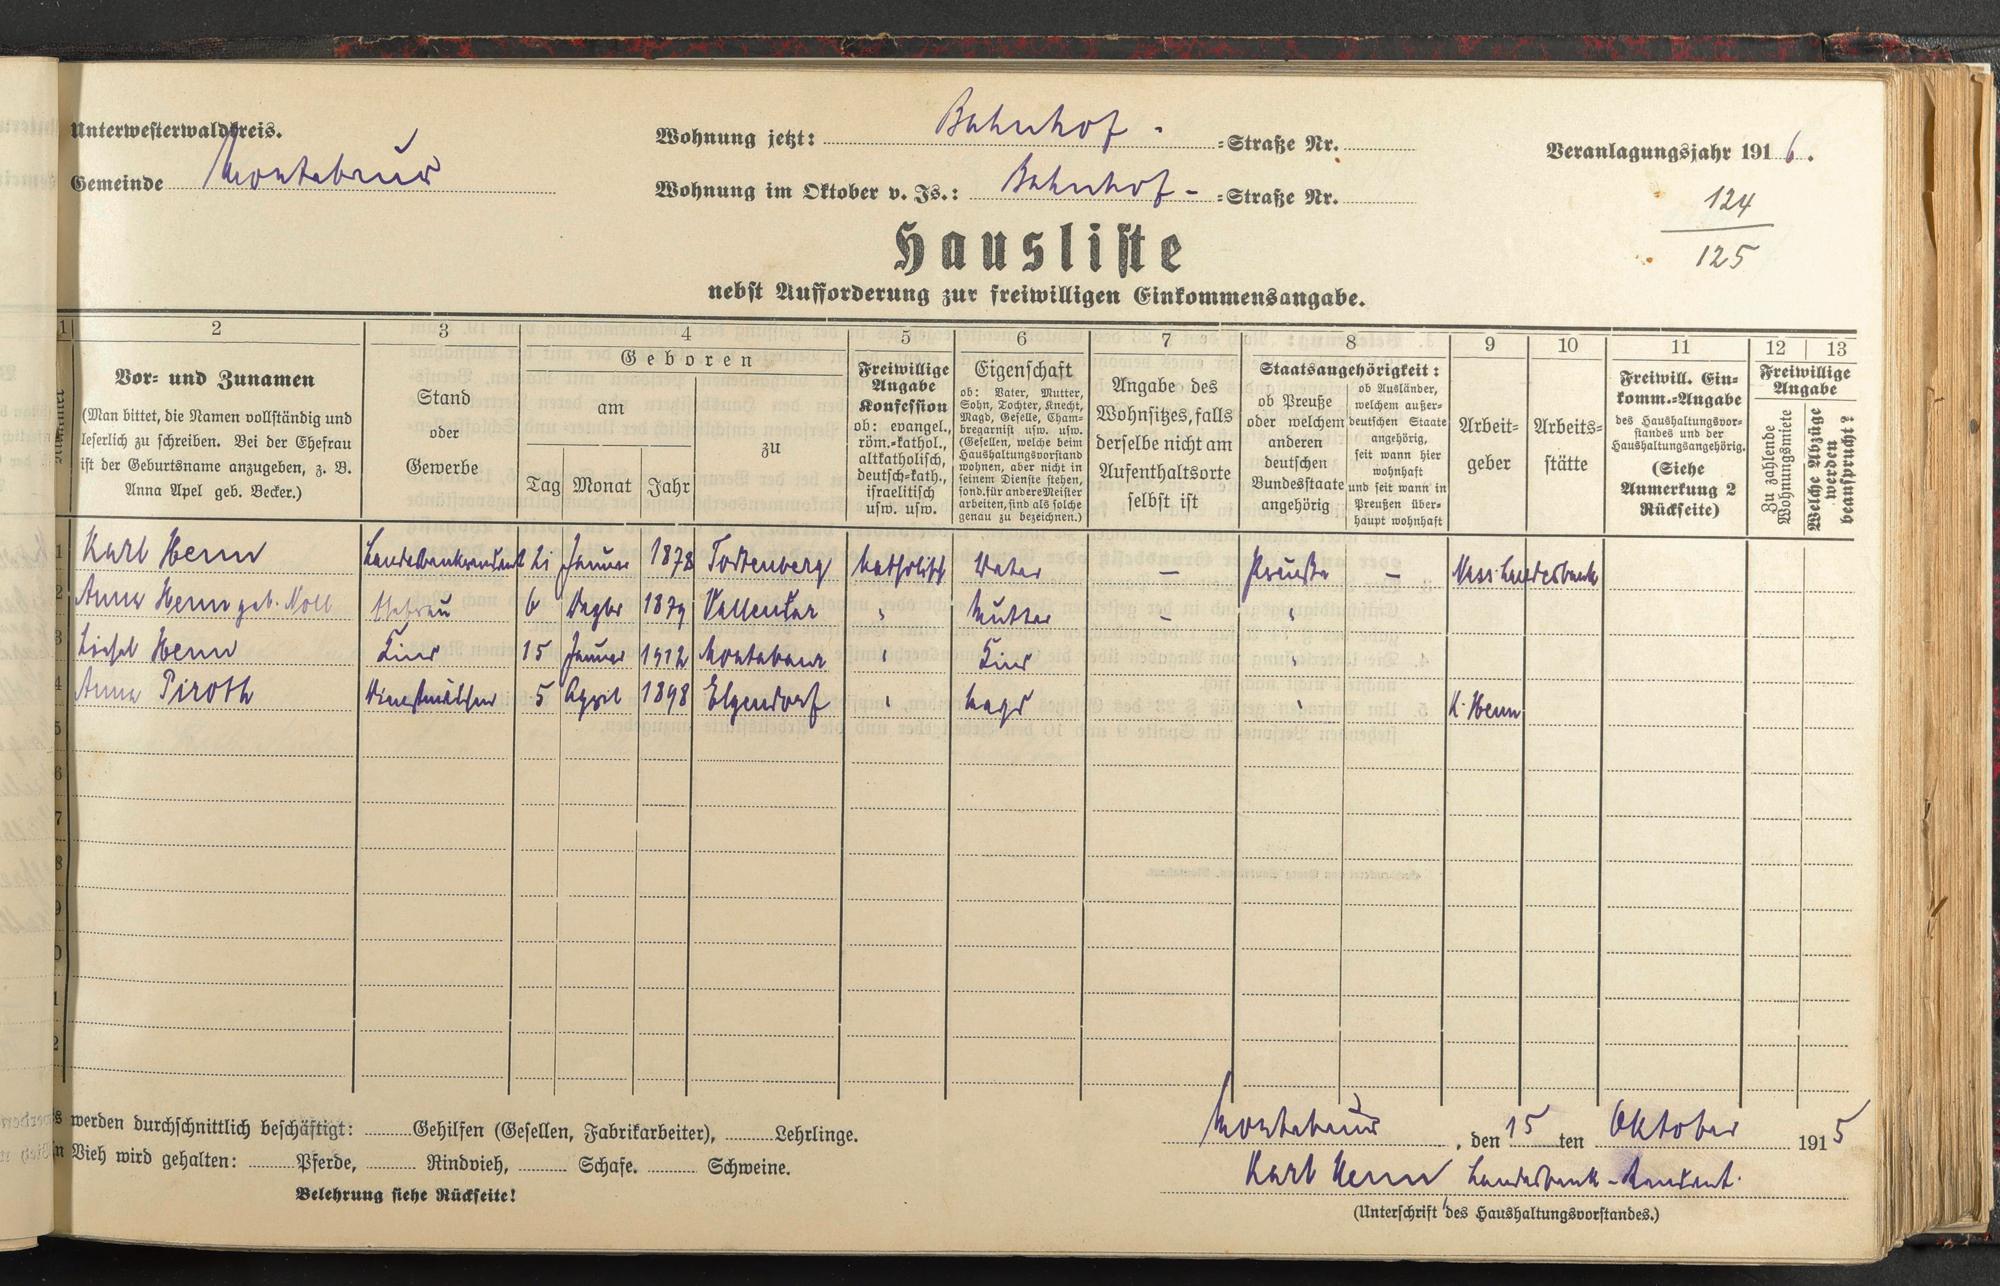 Unterwesterwaldkreis.
Gemeinde Montabaur
Wohnung jetzt: Bahnhof- =Straße Nr.
Wohnung im Oktober v. Js.: Bahnhof- =Straße Nr.
Veranlagungsjahr 1916.
124
125
Hausliste
nebst Aufforderung zur freiwilligen Einkommensangabe.
1 2 3 4 5 6 7 8 9 10 11 12 13
Nummer
Vor- und Zunamen
(Man bittet, die Namen vollständig und
leserlich zu schreiben. Bei der Ehefrau
ist der Geburtsname anzugeben, z. B.
Anna Apel geb. Becker.)
Stand
oder
Gewerbe
Geboren
am
zu
Tag Monat Jahr
Freiwillige
Angabe
Konfession
ob: evangel.,
röm.=kathol.,
altkatholisch,
deutsch=kath.,
israelitisch
usw. usw.
Eigenschaft
ob: Vater, Mutter,
Sohn, Tochter, Knecht,
Magd, Geselle, Cham-
bregarnist usw. usw.
(Gesellen, welche beim
Haushaltungsvorstand
wohnen, aber nicht in
seinem Dienste stehen,
sond. für andere Meister
arbeiten, sind als solche
genau zu bezeichnen.)
Angabe des
Wohnsitzes, falls
derselbe nicht am
Aufenthaltsorte
selbst ist
Staatsangehörigkeit:
ob Preuße
oder welchem
anderen
deutschen
Bundesstaate
angehörig
ob Ausländer,
welchem außer-
deutschen Staate
angehörig,
seit wann hier
wohnhaft
und seit wann in
Preußen über-
haupt wohnhaft
Arbeit-
geber
Arbeits-
stätte
Freiwill. Ein-
komm.=Angabe
des Haushaltungsvor-
standes und der
Haushaltungsangehörig.
(Siehe
Anmerkung 2
Rückseite)
Freiwillige
Angabe
Zu zahlende
Wohnungsmiete
Welche Abzüge
werden
beansprucht?
1 Karl Henn Landesbankrendant 21 Januar 1878 katholisch Vater – Preuße – Nass. Landesbank
2 Anna Henn geb. Noll Ehefrau 6 Dezbr 1879 Vallendar " Mutter – "
3 Liesel Henn Kind 15 Januar 1912 Montabaur " Kind "
4 Anna Piroth Dienstmädchen 5 April 1898 Elgendorf " Magd " K. Henn
5
6
7
8
9
0
1
2
s werden durchschnittlich beschäftigt: Gehilfen (Gesellen, Fabrikarbeiter), Lehrlinge.
n Vieh wird gehalten: Pferde, Rindvieh, Schafe. Schweine.
Belehrung siehe Rückseite!
Montabaur, den 15 ten Oktober 1915
Karl Henn Landesbank-Rendant.
(Unterschrift des Haushaltungsvorstandes.)